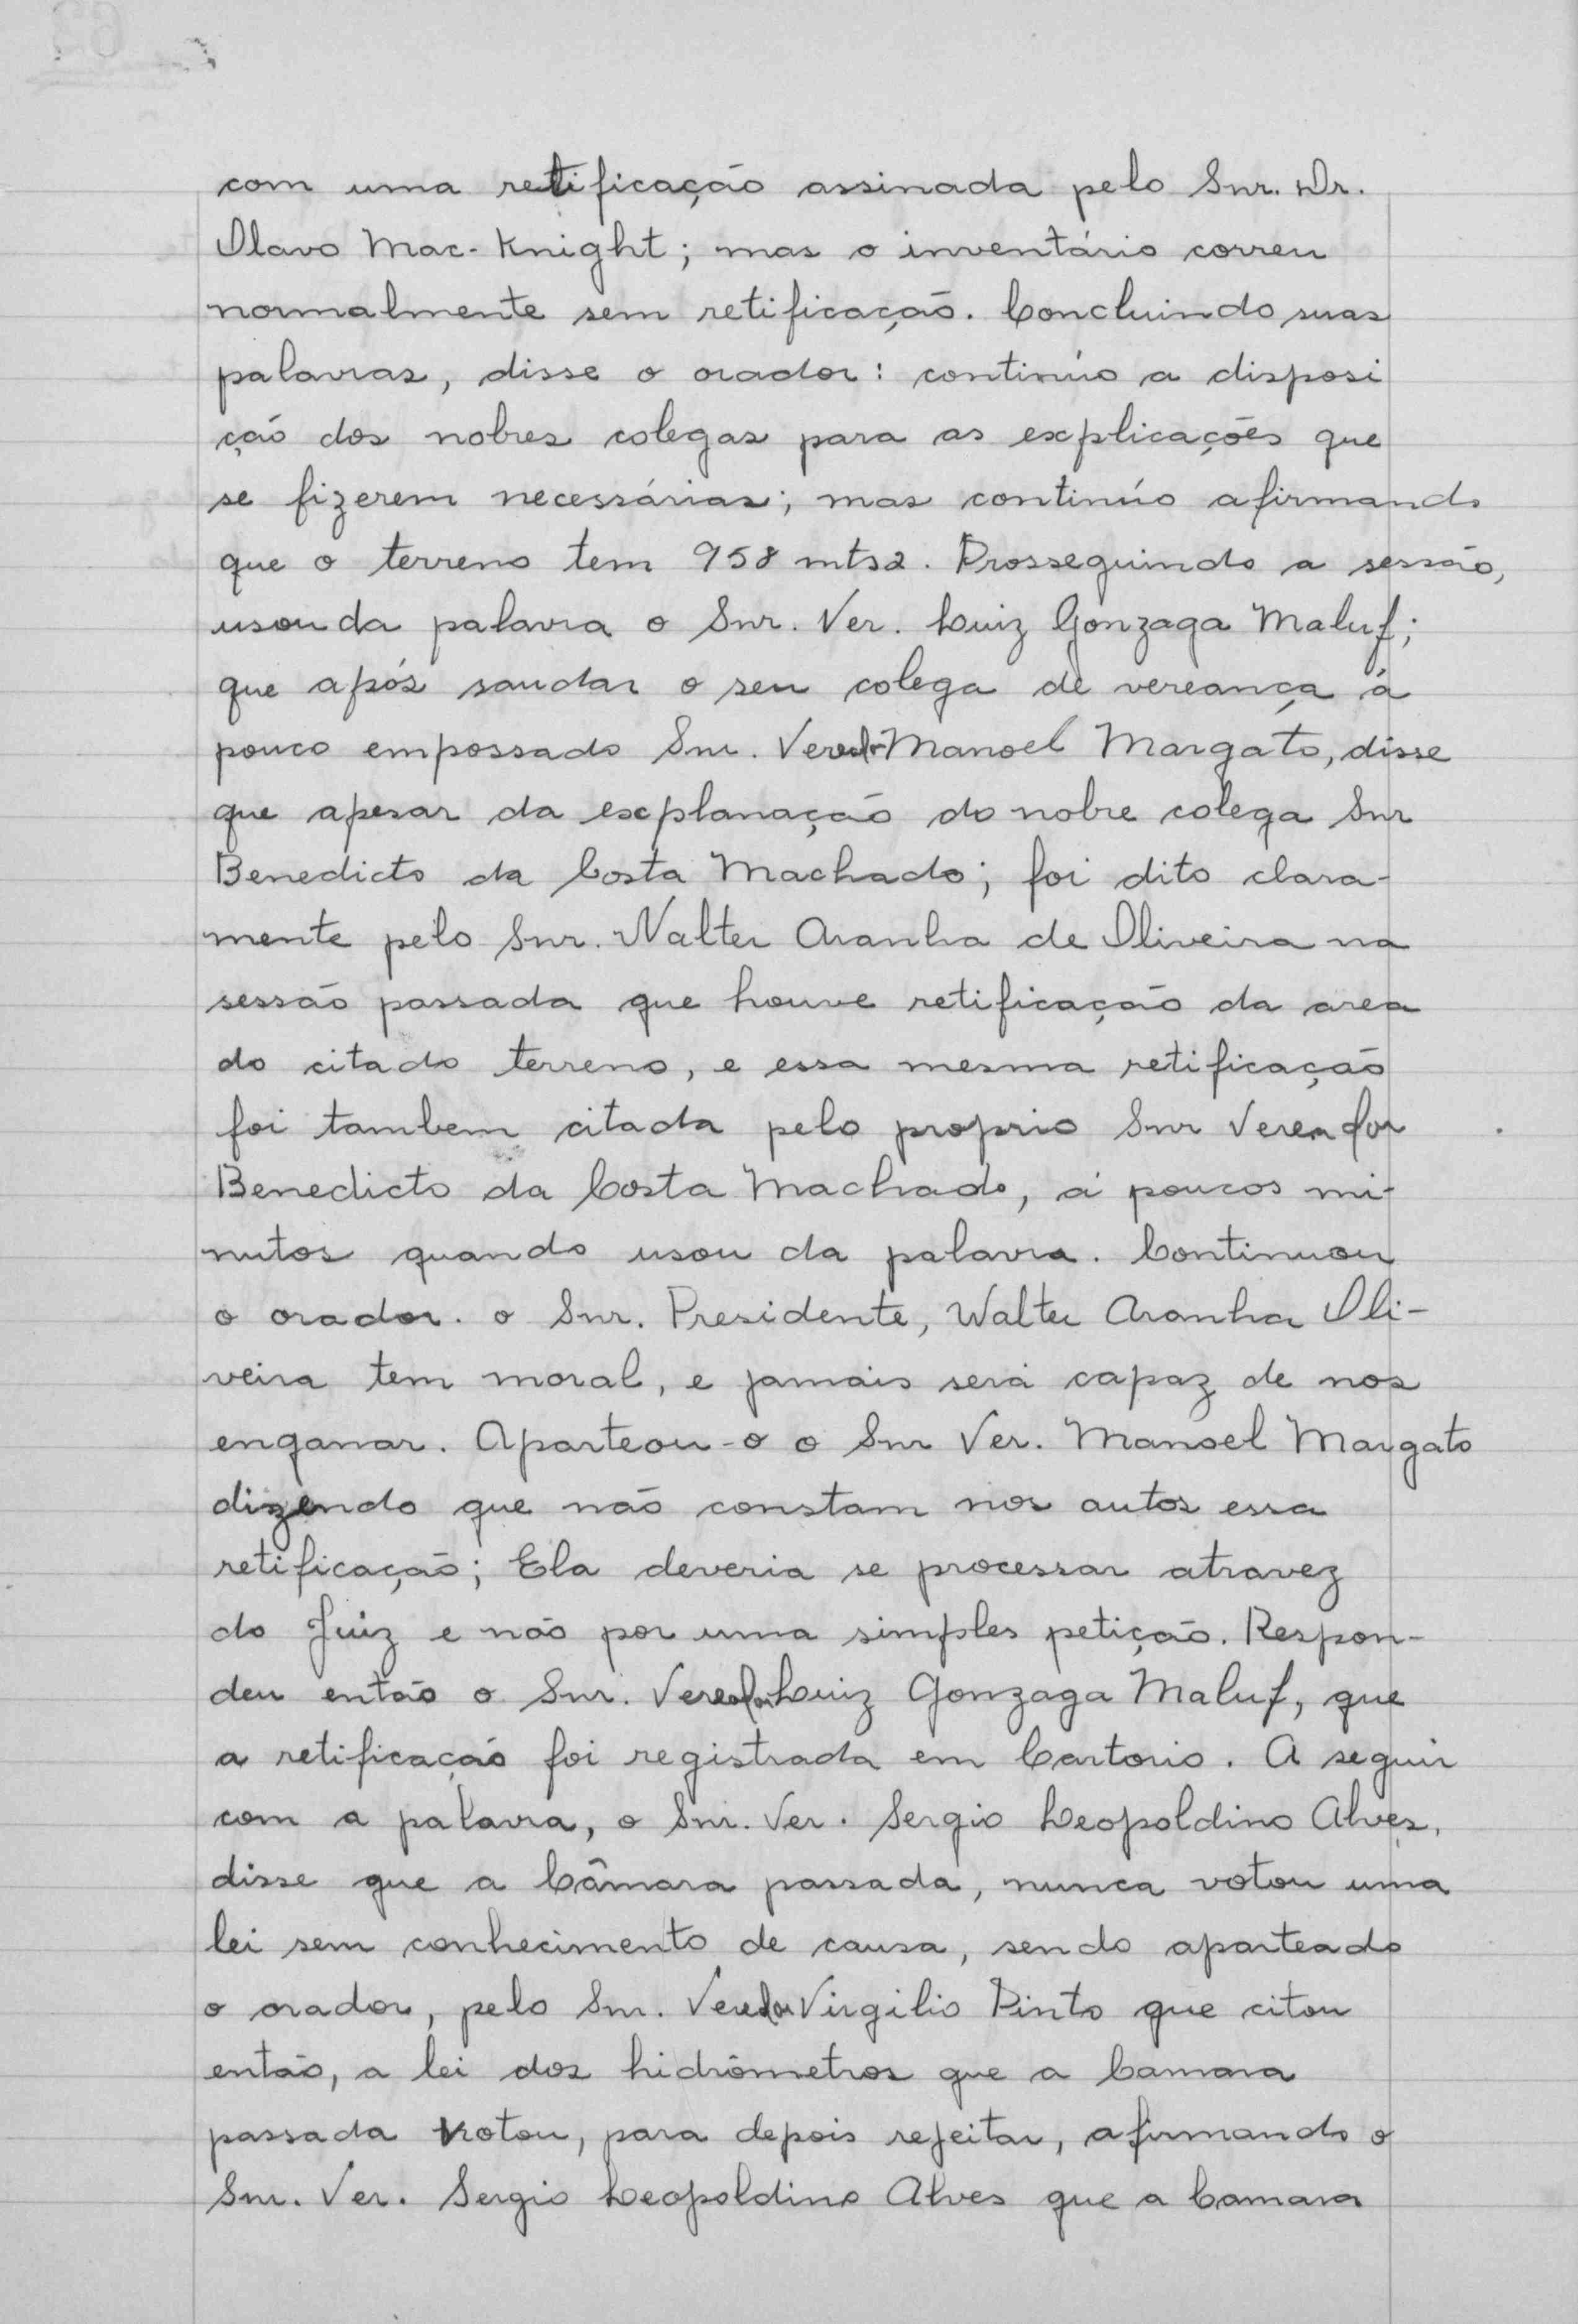 com uma retificação assinada pelo Snr. Dr.
Olavo Mac-Knight; mas o inventário correu
normalmente sem retificação. Concluindo suas
palavras, disse o orador: continúo a disposi
ção dos nobres colegas para as explicações que
se fizerem necessárias; mas continúo afirmando
que o terreno tem 958 mts2. Prosseguindo a sessão,
usou da palavra o Snr. Ver. Luiz Gonzaga Maluf;
que após saudar o seu colega de vereança á
pouco empossado Snr. Vereador Manoel Margato, disse
que apesar da explanação do nobre colega Snr
Benedicto da Costa Machado; foi dito clara-
mente pelo Snr. Walter Aranha de Oliveira na
sessão passada que houve retificação da area
do citado terreno, e essa mesma retificação
foi tambem citada pelo proprio Snr Vereador
Benedicto da Costa Machado, á poucos mi-
nutos quando usou da palavra. Continuou
o orador. o Snr. Presidente, Walter Aranha Oli-
veira tem moral, e jamais será capaz de nos
enganar. Aparteou-o o Snr Ver. Manoel Margato
dizendo que não constam nos autos essa
retificação; Ela deveria se processar atravez
do Juiz e não por uma simples petição. Respon-
deu então o Snr. Vereador Luiz Gonzaga Maluf, que
a retificação foi registrada em Cartorio. A seguir
com a palavra, o Snr. Ver. Sergio Leopoldino Alves,
disse que a Câmara passada, nunca votou uma
lei sem conhecimento de causa, sendo aparteado
o orador, pelo Snr. Vereador Virgilio Pinto que citou
então, a lei dos hidrômetros que a Camara
passada votou, para depois rejeitar, afirmando o
Snr. Ver. Sergio Leopoldino Alves que a Camara